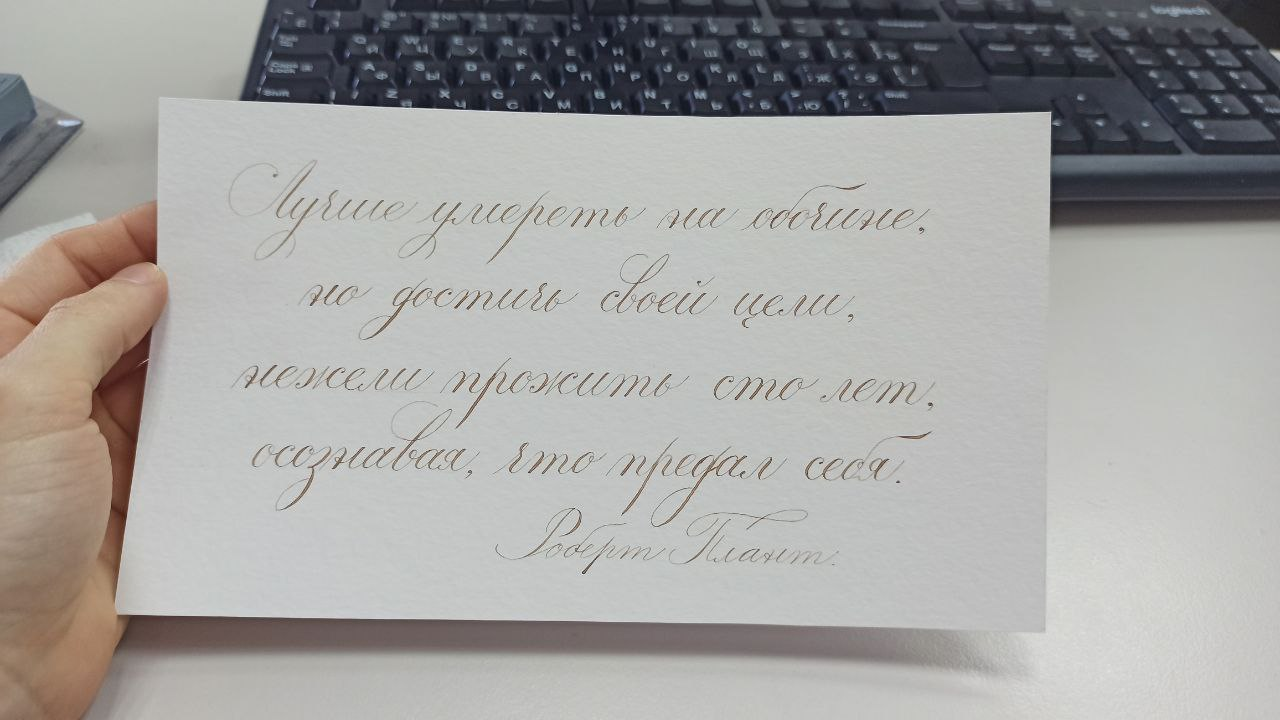 logitech
Лучше умереть на обочине,
но достичь своей цели,
нежели прожить сто лет,
осознавая, что предал себя.
Роберт Плант.